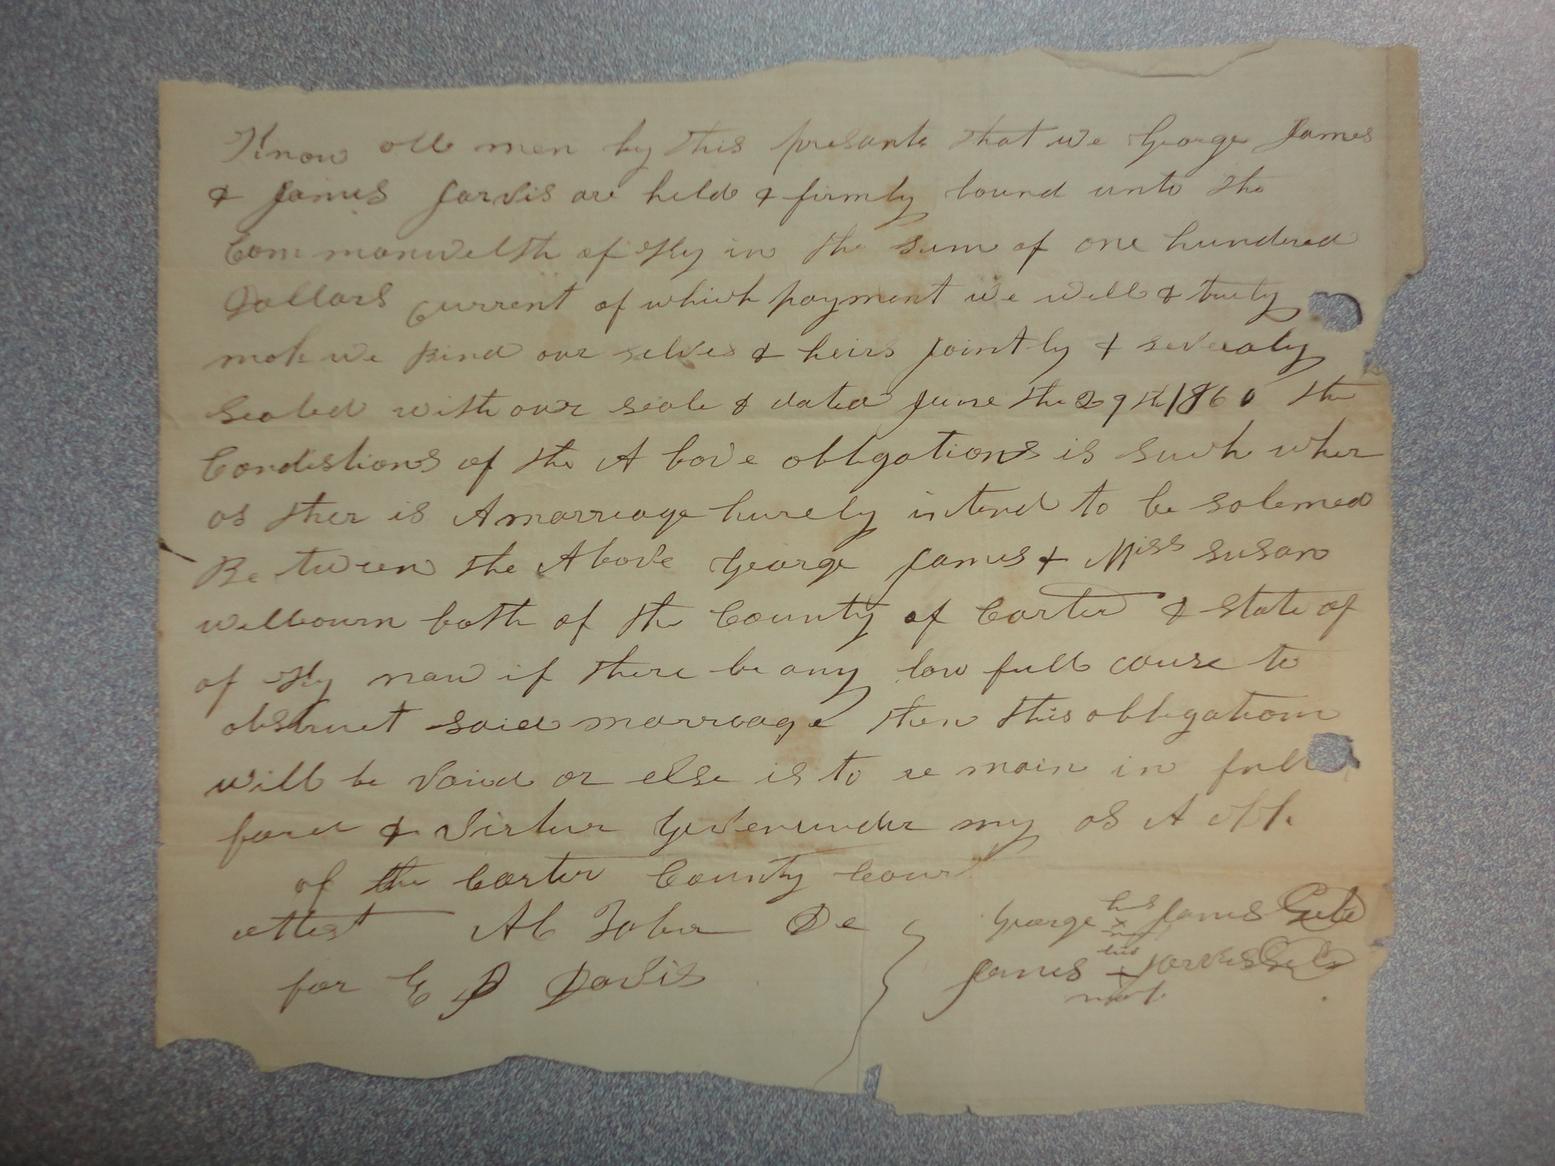 Know all men by this presants that we George James
& James Jarvis are held & firmly bound unto the
Commonwelth of Ky in the sum of one hundred
Dollars current of which payment we well & truly
mak we Bind our selves & heirs jointly & severaly
Sealed with our seals & dated June the 29th 1860 the
Condistions of the A bove obligations is such wher
as ther is A marriage intend to be solemed
Be tween the Above George James & Miss Susan
Welbourn both of the County of Carter & State of
of Ky now if there be any law full cause to
obstruct said marriage then this obligation
will be void or else is to re main in full
force & Virtue Given under my as A
of the Carter County Cour
attest
for Davis
George his x James Seld
James his x mark Jarvis Seld